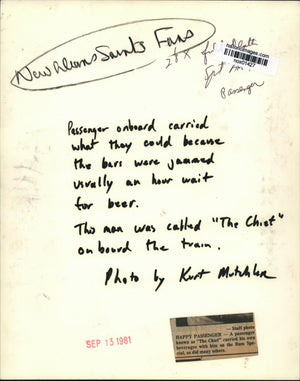 New Orleans Saints Fans
historicimages.com
Passenger
Passenger onboard carried
what they could because
the bars were jammed
usually an hour wait
for beer.
This man was called "The Chief"
on board the train.
Photo by Kurt Mutchler
SEP 13 1981
— Staff photo
HAPPY PASSENGER — A passenger
known as "The Chief" carried his own
beverages with him on the Bum Spe-
cial, as did many others.